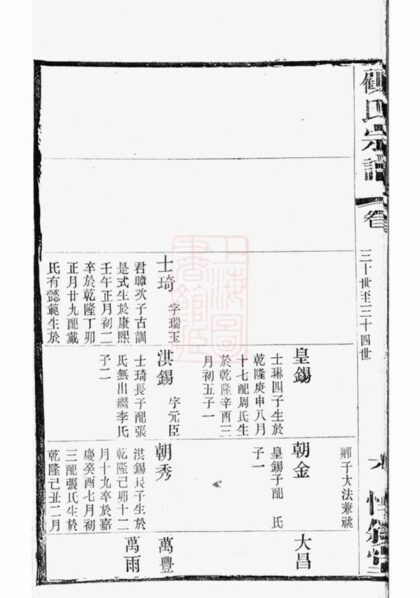 氏宗譜
卷
三十世至三十四世
卿子大法兼祧
皇錫
士琳四子生於
乾隆庚申八月
十七配周氏生
於乾隆辛酉三
月初五子一
朝金
皇錫子配 氏
子一
大昌
士琦 字瑞玉
君暐次子古訓
是式生於康熙
壬午正月初二
卒於乾隆丁卯
正月廿九配戴
氏有懿範生於
洪錫 字元臣
士琦長子配張
氏無出繼李氏
子二
朝秀
洪錫長子生於
乾隆己卯十二
月十九卒於嘉
慶癸酉七月初
三配張氏生於
乾隆己丑二月
萬豐
萬雨
上海圖
書館藏